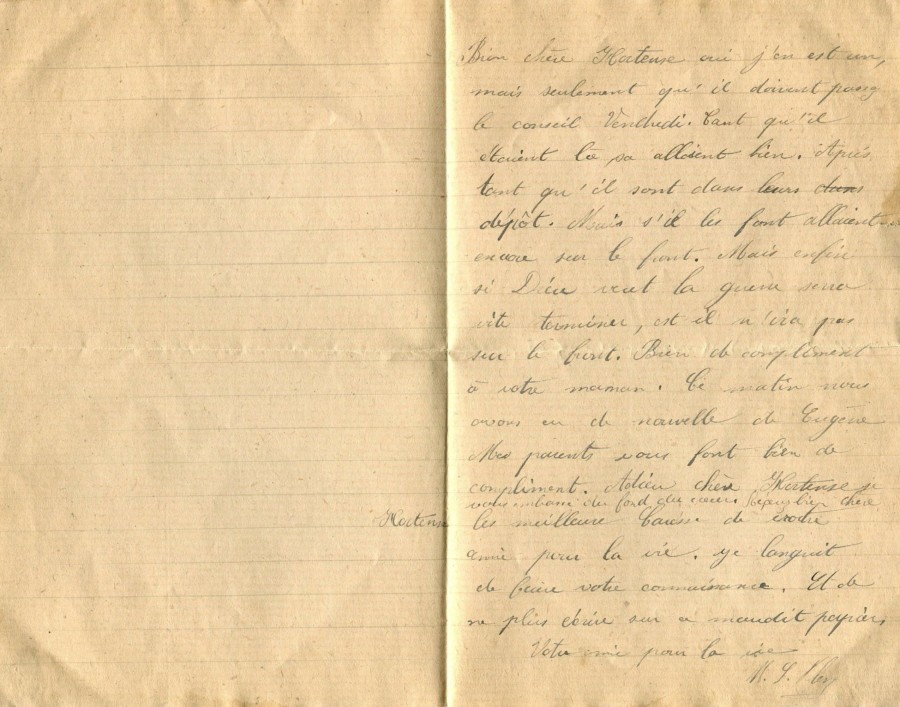 Bien chère Hortense oui j'en est un,
mais seulement qu'il doivent passé
le conseil Vendredi. Tant qu'il
étaient la sa allaient bien. Après
tant qu'il sont dans leurs dans
dépôt. Mais s'il les font allaient
encore sur le front. Mais enfin
si Dieu veut la guerre sera
vite terminer, est il n'ira pas
sur le front. Bien de compliment
à votre maman. Cé matin nous
avons eu de nouvelle de Eugène
Mes parents vous font bien de
compliment. Adieu chère Hortense je
vous embrasse du fond du coeur bien chère
Hortense les meilleure de votre
amie pour la vie. Je languit
de faire votre connaissance. Et de
ne plus écrire sur ce maudit papier.
Votre amie pour la vie
M. L.